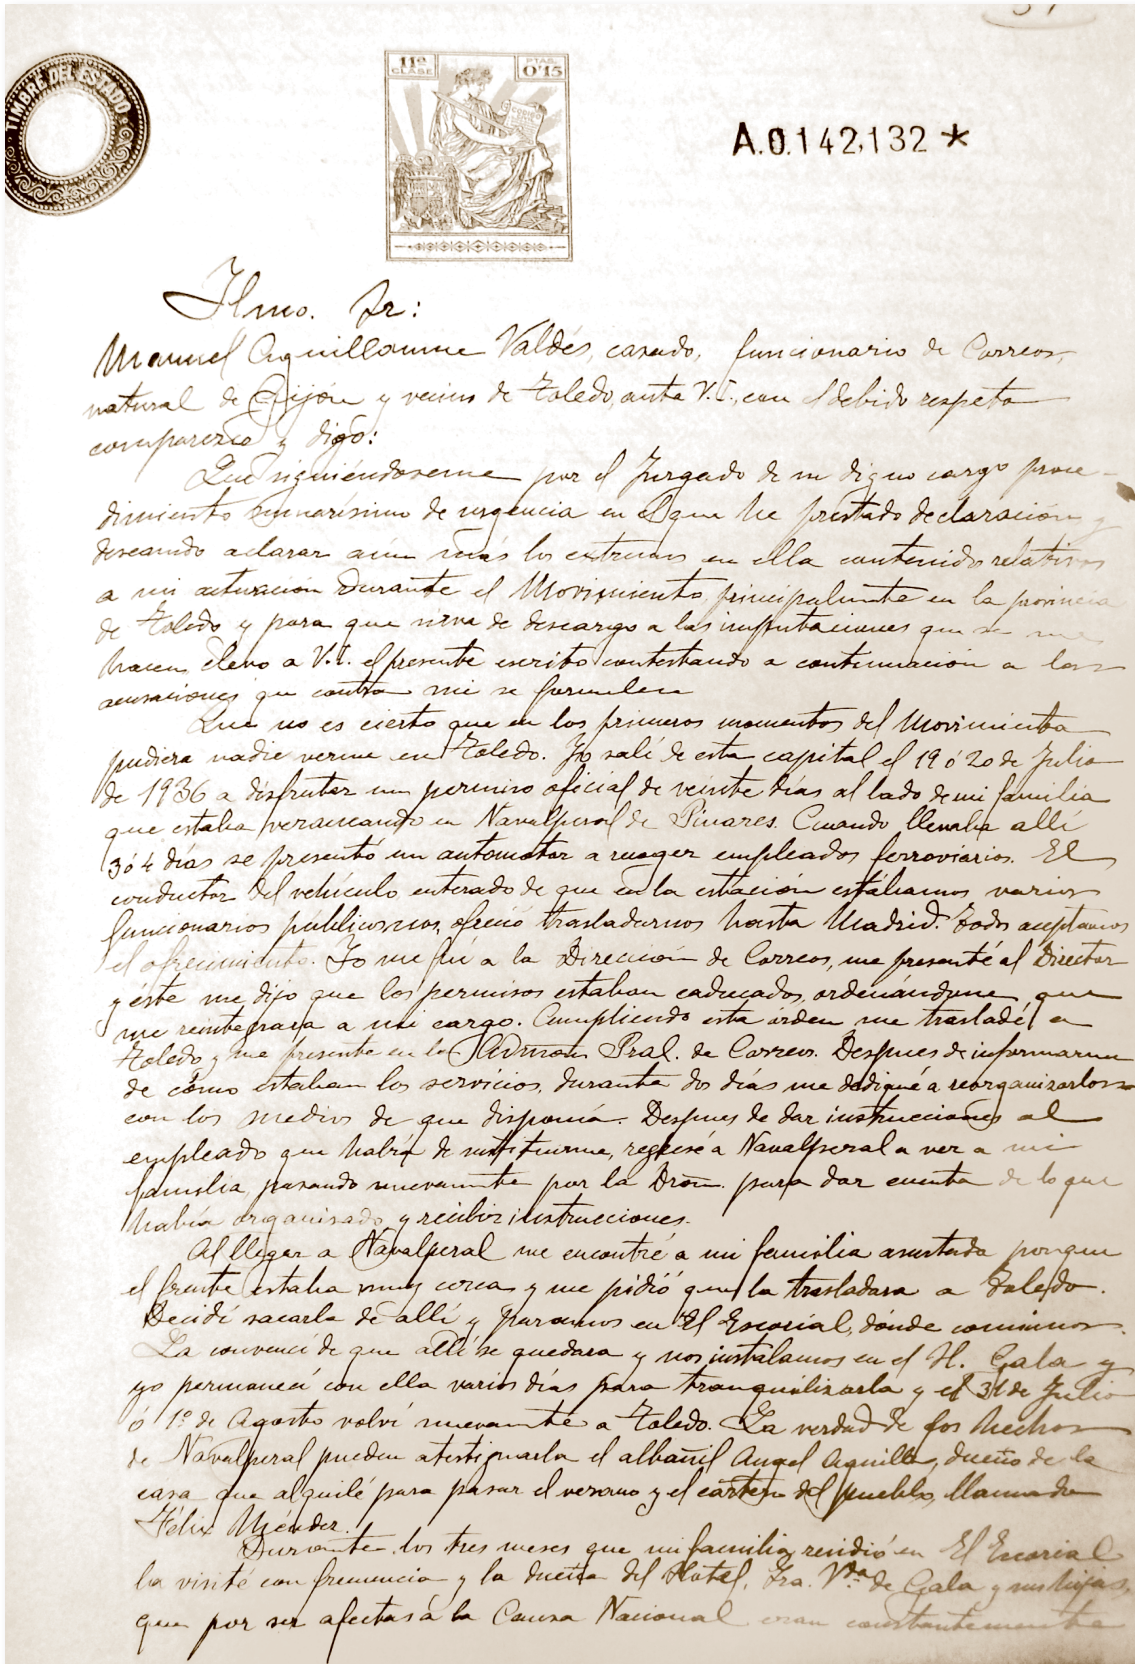 TIMBRE DEL ESTADO
11ª CLASE
PTAS. 0'15
A.0.142,132 *
Ilmo. Sr:
Manuel Aguillaume Valdés, casado, funcionario de Correos,
natural de Gijón y vecino de Toledo, ante V.I., con el debido respeto
comparezco y digo:
Que siguiéndoseme por el Juzgado de su digno cargo proce-
dimiento sumarísimo de urgencia en el que he prestado declaración y
deseando aclarar aún más los extremos en ella contenidos relativos
a mi actuación durante el Movimiento, principalmente en la provincia
de Toledo y para que sirva de descargo a las imputaciones que se me
hacen elevo a V.I. el presente escrito contestando a continuación a las
acusaciones que contra mi se formulen
Que no es cierto que en los primeros momentos del Movimiento
pudiera nadie verme en Toledo. Yo salí de esta capital el 19 ó 20 de Julio
de 1936 a disfrutar un permiso oficial de veinte días al lado de mi familia
que estaba veraneando en Navalperal de Pinares. Cuando llevaba allí
3 ó 4 días se presentó un automotor a recoger empleados ferroviarios. El
conductor del vehículo enterado de que en la estación estábamos varios
funcionarios públicos nos ofreció trasladarnos hasta Madrid. Todos aceptamos
el ofrecimiento. Yo me fuí a la Dirección de Correos, me presenté al Director
y éste me dijo que los permisos estaban caducados, ordenándome que
me reintegrara a mi cargo. Cumpliendo esta órden me trasladé a
Toledo y me presente en la Admon Pral. de Correos. Despues de informarme
de cómo estaban los servicios, durante dos días me dediqué a reorganizarlos
con los medios de que disponía. Despues de dar instrucciones al
empleado que habría de sustituirme, regresé a Navalperal a ver a mi
familia, pasando nuevamente por la Dron. para dar cuenta de lo que
había organizado y recibir instrucciones.
Al llegar a Navalperal me encontré a mi familia asustada porque
el frente estaba muy cerca y me pidió que la trasladara a Toledo.
Decidí sacarla de allí y paramos en El Escorial, dónde comimos.
La convencí de que allí se quedara y nos instalamos en el H. Gala y
yo permanecí con ella varios días para tranquilizarla y el 31 de Julio
ó 1º de Agosto volví nuevamente a Toledo. La verdad de los hechos
de Navalperal pueden atestiguarla el albañil Angel Aguilla, dueño de la
casa que alquilé para pasar el verano y el cartero del pueblo, llamado
Félix Méndez.
Durante los tres meses que mi familia residió en El Escorial
la visité con frecuencia y la dueña del Hotel, Sra. Vda de Gala y sus hijas,
que por ser afectas á la Causa Nacional eran constantemente